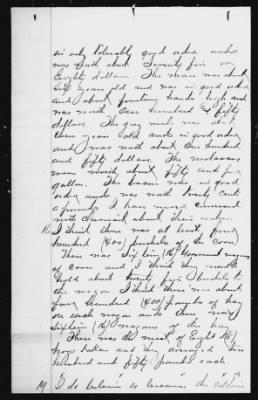 in only tolerably good order and
was worth about Seventy five or
Eighty dollars. The mare was about
six years old and was in good order
and about fourteen hands high and
was worth One hundred & fifty
dollars. The grey mule was about
three years old and in good order
and was worth about One hundred
and fifty dollars. The molasses
was worth about fifty cents per
gallon. The bacon was in good
order and was worth twenty cents
a pound. I have more
about their value.
I think there was at least four
hundred (400) bushels of the corn.
There was Sixteen (16) Government wagons
of corn and I think they would
hold about twenty five bushels to
the wagon I think there was about
four hundred (400) pounds of hay
on each wagon and there was
Sixteen (16) wagons of the hay.
There was the meat of Eight (8)
hogs taken and they averaged two
hundred and fifty pounds each
I do believe so because the soldiers